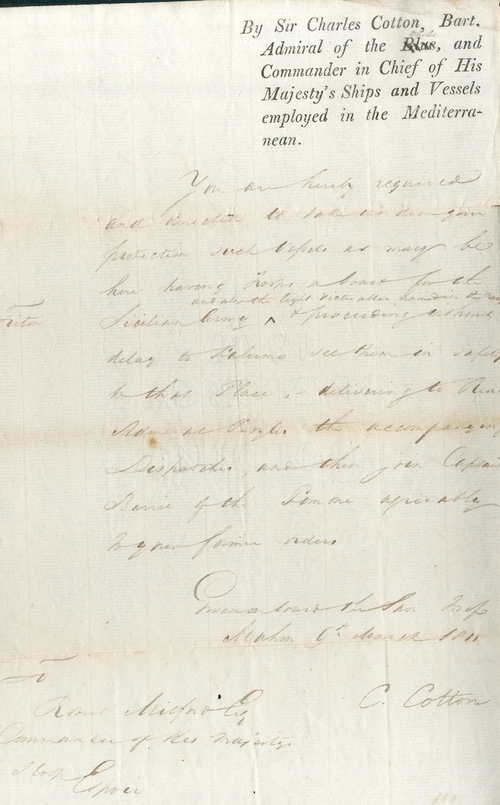 By Sir Charles Cotton, Bart.
Admiral of the Blue, and
Commander in Chief of His
Majesty's Ships and Vessels
employed in the Mediterra-
nean.
You are hereby required
and directed to take under your
protection such Vessels as may be
here having Troops aboard for the
and also the
Sicilian Army ^ & proceeding without
delay to Palermo see them in safety
to that Place, delivering to Rear
Admiral Boyles the accompanying
Dispatches, and then join Captain
Barrie of the Pomone agreeably
to your former orders
Given on board the San Josef
Mahon 9th March 1811
C. Cotton
To
Mitford Esq
Commander of His Majestys
Sloop Espoir